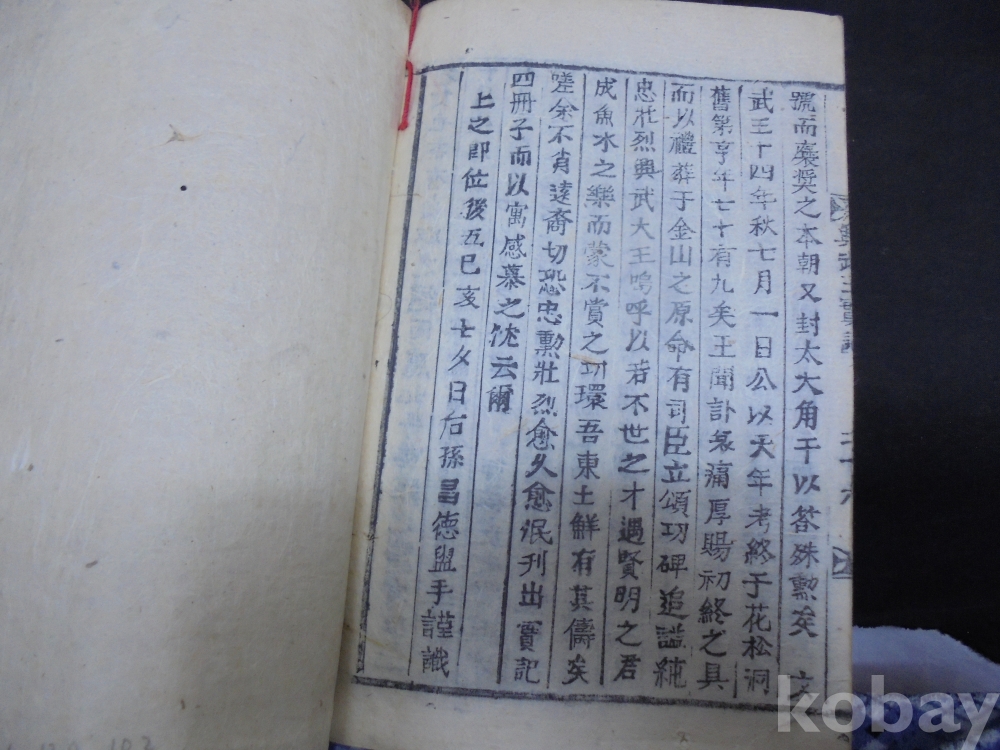 號而褒奬之本朝又封太大角干以答殊勲矣 文
武王十四年秋七月一日公以天年考終于花松洞
舊第享年七十有九矣王聞訃哀痛厚賜初終之具
而以禮葬于金山之原命有司臣立頌功碑追謚純
忠壯烈興武大王嗚呼以若不世之才遇賢明之君
成魚水之樂而蒙不賞之功環吾東土鮮有其儔矣
嗟余不肖遠裔切恐忠勲壯烈愈久愈泯刊出實記
四冊子而以寓感慕之忱云爾
上之卽位後五巳亥七夕日后孫昌德盥手謹識
興武王實記
二十六
kobay